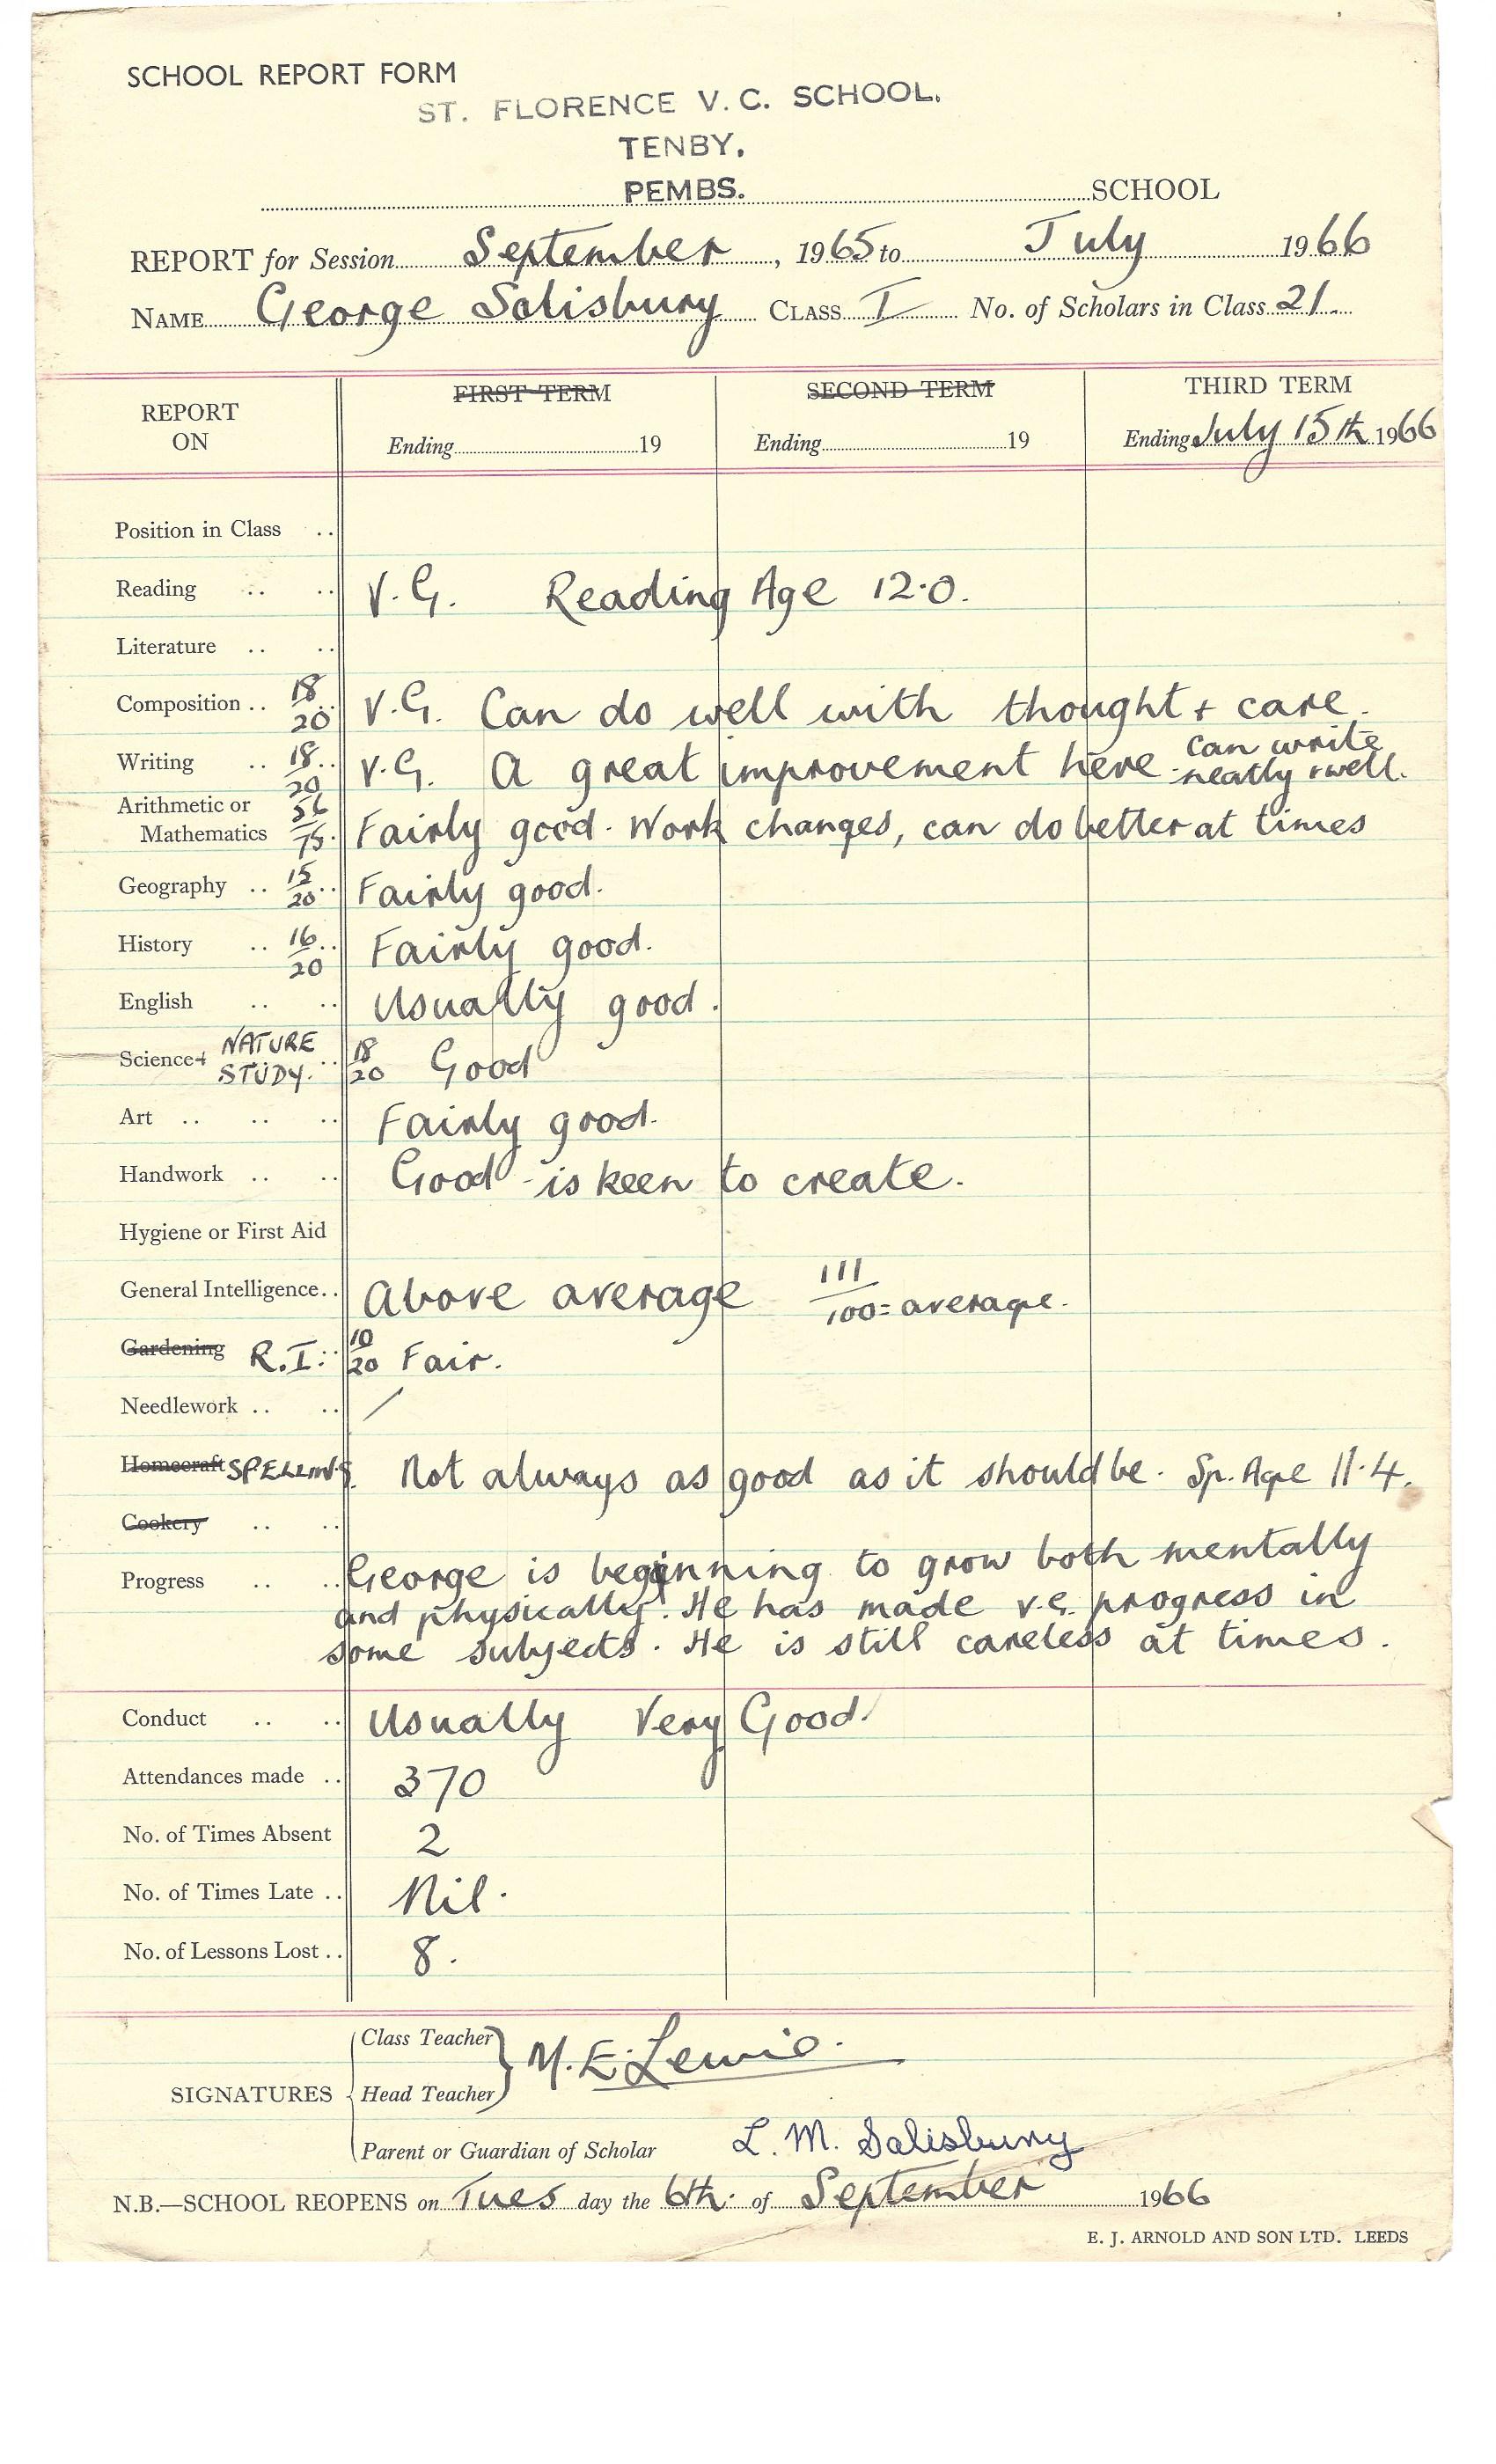 SCHOOL REPORT FORM
ST. FLORENCE V.C. SCHOOL.
TENBY.
PEMBS. SCHOOL
REPORT for Session September, 1965 to July 1966
NAME George Salisbury CLASS I No. of Scholars in Class 21.
REPORT ON
FIRST TERM
Ending 19
SECOND TERM
Ending 19
THIRD TERM
Ending July 15th 1966
Position in Class ..
Reading .. .. V.G. Reading Age 12.0.
Literature .. ..
Composition .. 18/20 V.G. Can do well with thought + care.
Writing .. 18/20 V.G. A great improvement here - can write neatly + well.
Arithmetic or Mathematics 56/75 Fairly good. Work changes, can do better at times
Geography .. 15/20 Fairly good.
History .. 16/20 Fairly good.
English .. .. Usually good.
Science + NATURE STUDY. 18/20 Good
Art .. .. .. Fairly good.
Handwork .. .. Good - is keen to create.
Hygiene or First Aid
General Intelligence .. Above average 111/100 = average.
Gardening R.I. 10/20 Fair.
Needlework .. .. /
Homecraft SPELLING. Not always as good as it should be. Sp. Age 11.4.
Cookery .. ..
Progress .. .. George is beginning to grow both mentally
and physically! He has made v.g. progress in
some subjects. He is still careless at times.
Conduct .. .. Usually Very Good.
Attendances made .. 370
No. of Times Absent 2
No. of Times Late .. Nil.
No. of Lessons Lost .. 8.
SIGNATURES
Class Teacher
Head Teacher
M.E. Lewis.
Parent or Guardian of Scholar L. M. Salisbury
N.B.—SCHOOL REOPENS on Tues day the 6th. of September 1966
E. J. ARNOLD AND SON LTD. LEEDS